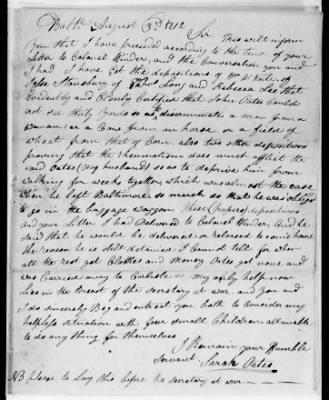 Balto August 6th 1812
Sir This will inform
you that I have proceeded according to the tenor of your
Letter to Colonel Winder, and the Conversation you and
I had. I have got the depositions of
Stansbury of Long and Rebecca Lee that
Evidently and Clearly Certified that John Oates Could
not see thirty yards so as to discriminate a man from a
woman: or a Cow from an horse or a field of
wheat from that of Corn. also two other depositions
proving that the rheumatism does much afflict the
said Oates (my husband) so as to deprive him from
walking for weeks together, which was almost the case
when he left Baltimore so much so that he was obliged
to go in the baggage waggon These (papers) depositions
and your Letter I had delivered to Colonel Winder. And he
said that he would be delivered or released to come home
the reason he is still detained I Cannot tell for when
all the rest got Clothes and money Oates got none and
was Carried away to Carlisle so my only help now
lies in the Breast of the Secretary at war. and you and
I do sincerely Beg and entreat you both to Consider my
helpless situation with four Small Children all unable
to do any thing for themselves
I Remain your Humble
Servant Sarah Oates
NB please to Lay this before the secretary at war